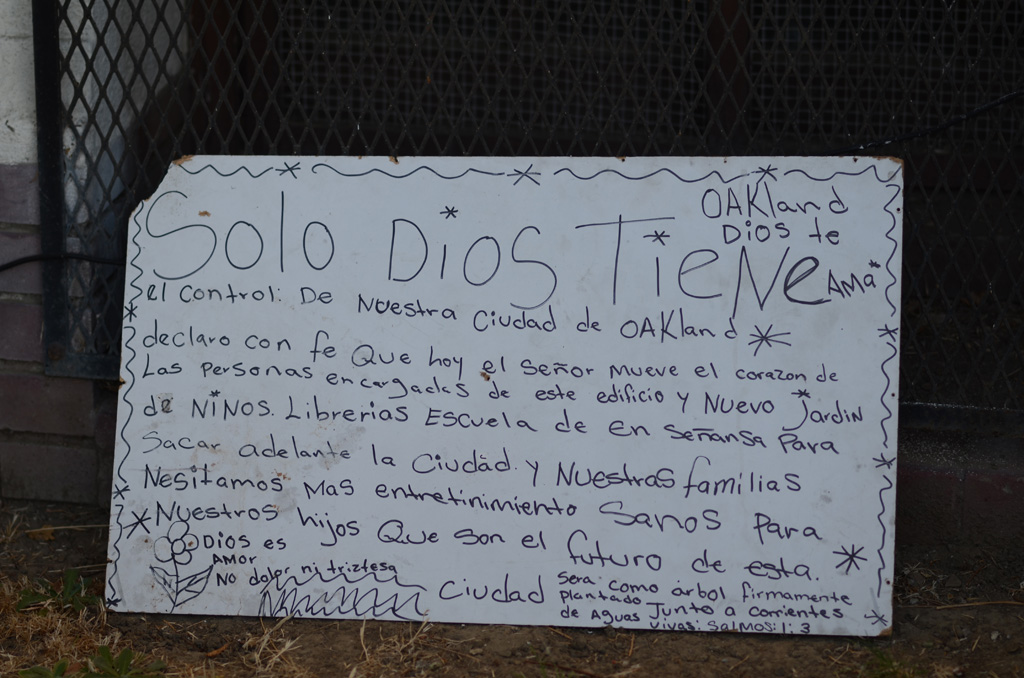 OAKland
Dios te
AMA
Solo Dios TieNe
el control: De Nuestra Ciudad de OAKland
declaro con fe Que hoy el Señor mueve el corazon de
Las Personas encargadas de este edificio y Nuevo Jardin
de NiNOS. Librerias Escuela de en señansa Para
Sacar adelante la Ciudad. y Nuestras familias
Nesitamos Mas entretinimiento Sanos Para
Nuestros hijos Que son el futuro de esta.
Ciudad
Dios es
AMOR
No dolor ni triztesa
Sera: como árbol firmemente
plantado Junto a corrientes
de Aguas vivas: Salmos: 1: 3